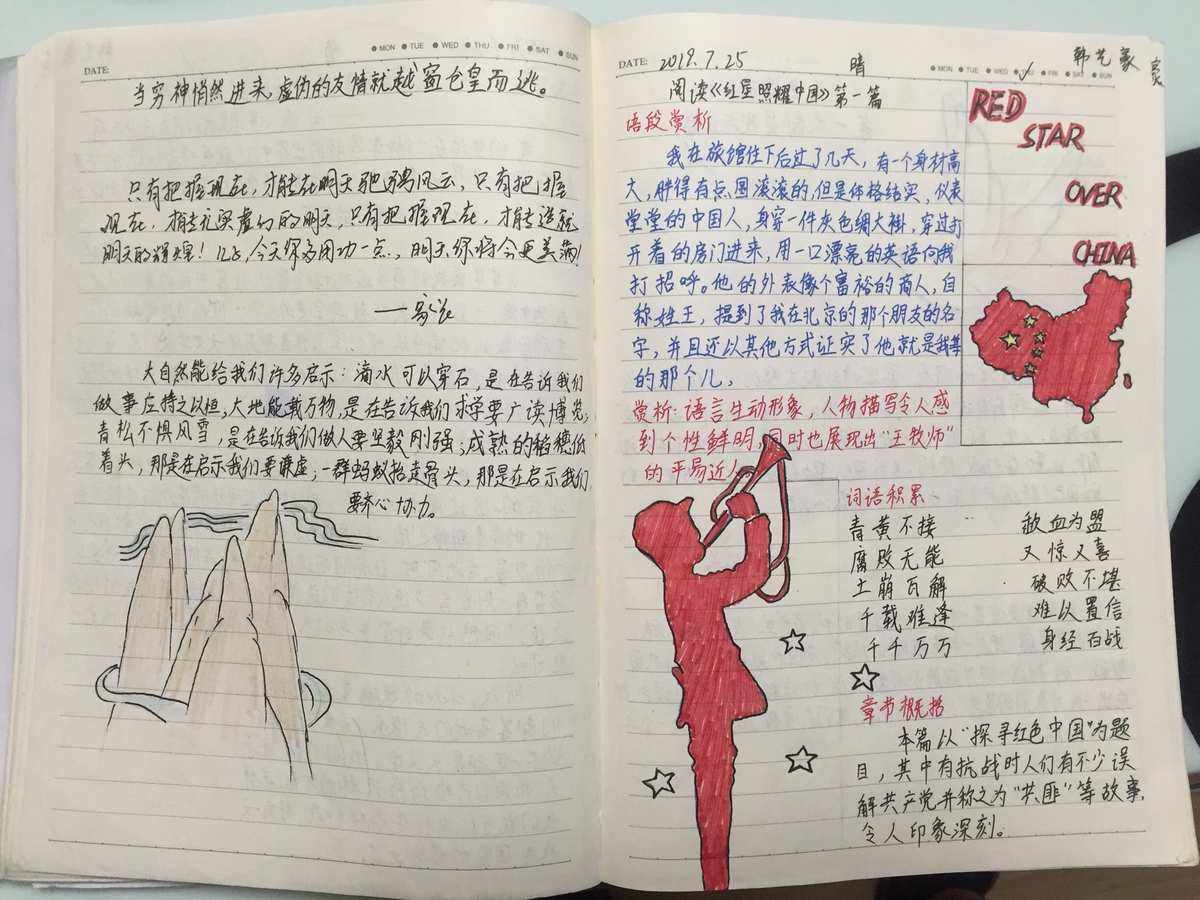 ● MON ● TUE ● WED ● THU ● FRI ● SAT ● SUN
DATE:
当穷神悄然进来,虚伪的友情就越窗仓皇而逃。
只有把握现在,才能在明天驰骋风云,只有把握
现在,才能充实虚幻的明天,只有把握现在,才能造就
明天的辉煌!记. 今天你多用功一点,明天你将会更美满!
大自然能给我们许多启示:滴水可以穿石,是在告诉我们
做事应持之以恒,大地能载万物,是在告诉我们求学要广读博览;
青松不惧风雪,是在告诉我们做人要坚毅刚强;成熟的稻穗低
着头,那是在启示我们要谦虚;一群蚂蚁抬走骨头,那是在启示我们
要齐心协力。
DATE: 2019.7.25 晴
● MON ● TUE ● WED ● THU ● FRI ● SAT ● SUN
韩艺豪
家
阅读《红星照耀中国》第一篇
RED
STAR
OVER
CHINA
语段赏析
我在旅馆住下后过了几天,有一个身材高
大,胖得有点圆滚滚的,但是体格结实,仪表
堂堂的中国人,身穿一件灰色绸大褂,穿过打
开着的房门进来,用一口漂亮的英语向我
打招呼。他的外表像个富裕的商人,自
称姓王,提到了我在北京的那个朋友的名
字,并且还以其他方式证实了他就是我等
的那个人,
赏析:语言生动形象,人物描写令人感
到个性鲜明,同时也展现出“王牧师”
的平易近人
词语积累
青黄不接 歃血为盟
腐败无能 又惊又喜
土崩瓦解 破败不堪
千载难逢 难以置信
千千万万 身经百战
章节概括
本篇以“探寻红色中国”为题
目,其中有抗战时人们有不少误
解共产党并称之为“共匪”等故事,
令人印象深刻。